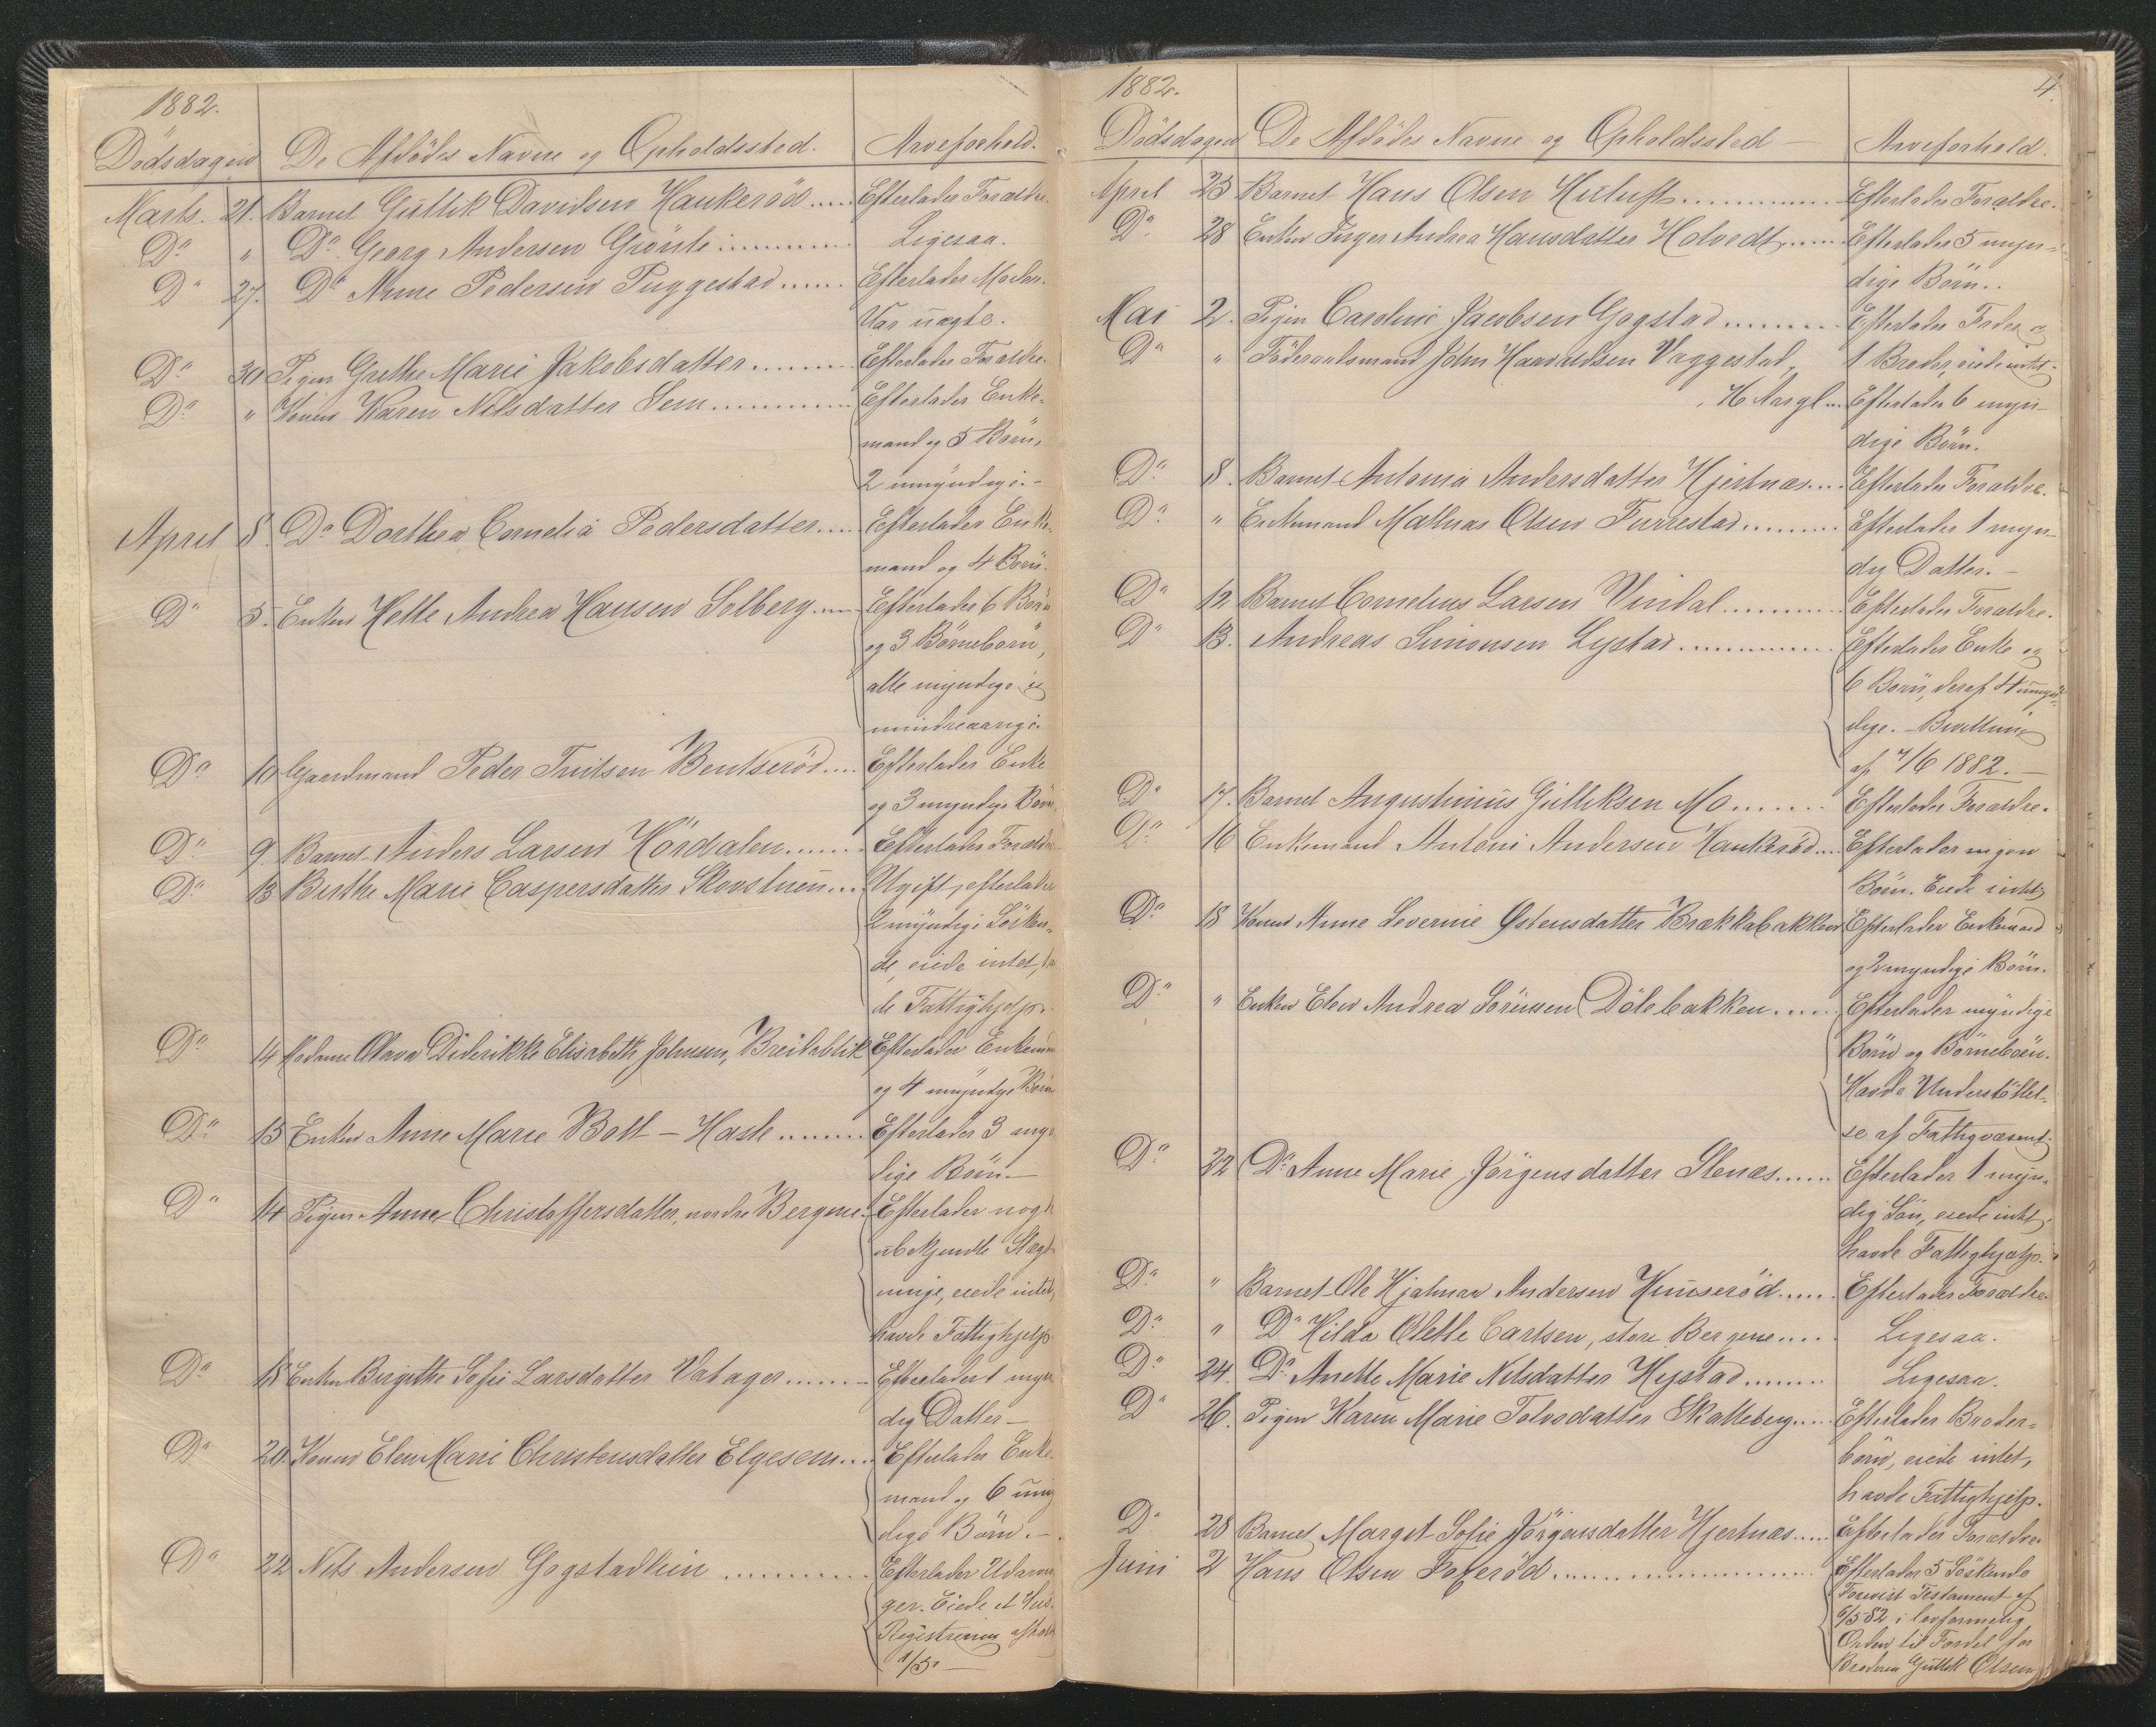 1882.
Dödsdagen De Afdödes Navne og Opholdssted. Arveforhold.
Marts. 21. Barnet Gullik Davidsen Haukeröd..... Efterlader Forældre.
Do " Do Georg Andersen Grönli........... Ligesaa.
Do 27. Do Anne Pedersen Tuggestad...... Efterlader Moder.
Var uægte.
Do 30 Pigen Grethe Marie Jakobsdatter......... Efterlader Forældre.
Do " Konen Karen Nilsdatter Sem............. Efterlader Enke-
mand og 5 Börn,
2 umyndige.-
April 8. Do Dorthea Cornelia Pedersdatter.... Efterlader Enke-
mand og 4 Börn.
Do 5. Enken Helle Andrea Hansen Solberg.... Efterlader 6 Börn
og 3 Börnebörn,
alle myndige og
mindreaarige.
Do 10 Gaardmand Peder Bentseröd.... Efterlader Enke
og 3 myndige Börn
Do 9. Barnet Anders Larsen Hördalen....... Efterlader Forældre
Do 13 Birthe Marie Caspersdatter Skovstuen... Ugift, efterlader
2 myndige Sösken-
de, eiede intet,
de Fattighjelp.
Do 14 Madame Olava Didrikke Elisabeth Johnsen, Breidablik Efterlader Enkemand
og 4 umyndige Börn
Do 15 Enken Anne Marie Bolt - Hasle........ Efterlader 3 myn-
dige Börn-
Do 14 Pigen Anne Christoffersdatter, nordre Bergene. Efterlader nogle
ubekjendte Slægt-
ninge, eiede intet,
havde Fattighjelp
Do 18 Enken Birgithe Sofie Larsdatter Vatager....... Efterlader 1 myn-
dig Datter-
Do 20. Konen Elen Marie Christensdatter Elgesem... Efterlader Enke-
mand og 6 umyn-
dige Börn.-
Do 22 Nils Andersen Gogstadhein .......... Efterlader Udarvin-
ger. Eiede et Hus.
Registrering afholdt
1/5.-
1882. 4.
Dödsdagen De Afdödes Navne og Opholdssted - Arveforhold.
April 23 Barnet Hans Olsen Huluft.............. Efterlader Forældre.
Do 28 Enken Inger Andrea Hansdatter Holvedt...... Efterlader 5 myn-
dige Börn..
Mai 2. Pigen Caroline Jacobsen Gogstad.......... Efterlader Fader og
Do " Föderaadsmand John Haavaldsen Vaggestad, 1 Broder, eiede intet.
H Aargl... Efterlader 6 myn-
dige Börn.
Do 8. Barnet Antonia Andersdatter Hjertnæs.... Efterlader Forældre.
Do " Enkemand Mathias Olsen Furrestad......... Efterlader 1 myn-
dig Datter.-
Do 12 Barnet Cornelius Larsen Vindal........... Efterlader Forældre.
Do 13. Andreas Simonsen Lystad.............. Efterlader Enke og
6 Börn, deraf 4 umyn-
dige.- Bevilling
af 7/6 1882.-
Do 17. Barnet Augustinius Gulliksen Mo....... Efterlader Forældre.
Do 16 Enkemand Antoni Andersen Haukeröd... Efterlader ingen
Börn. Eiede intet,
Do 18 Konen Anne Severine Østensdatter Brækkabakken Efterlader Enkemand
og 2 myndige Börn.
Do " Enken Elen Andrea Sörensen Dölebakken..... Efterlader myndige
Börn og Börnebörn.
Havde Understöttel-
se af Fattigvæsenet
Do 22 Do Anne Marie Jörgensdatter Stenæs...... Efterlader 1 myn-
dig Sön, eiede intet,
havde Fattighjælp.
Do " Barnet Ole Hjalmar Andersen Hunseröd..... Efterlader Forældre.
Do " Do Hilda Olette Carlsen, store Bergene..... Ligesaa.
Do 24. Do Anette Marie Nilsdatter Hystad........ Ligesaa.
Do 26. Pigen Karen Marie Tolvsdatter Skalleberg.... Efterlader Broder-
börn, eiede intet,
havde Fattighjelp.
Do 28 Barnet Margit Sofie Jörgensdatter Hjertnæs..... Efterlader Forældre.
Juni 2 Hans Olsen Fokseröd..................... Efterlader 5 Söskende
Forevist Testament af
6/5 82 i lovformelig
Orden til Fordel for
Broderen Gullik Olsen